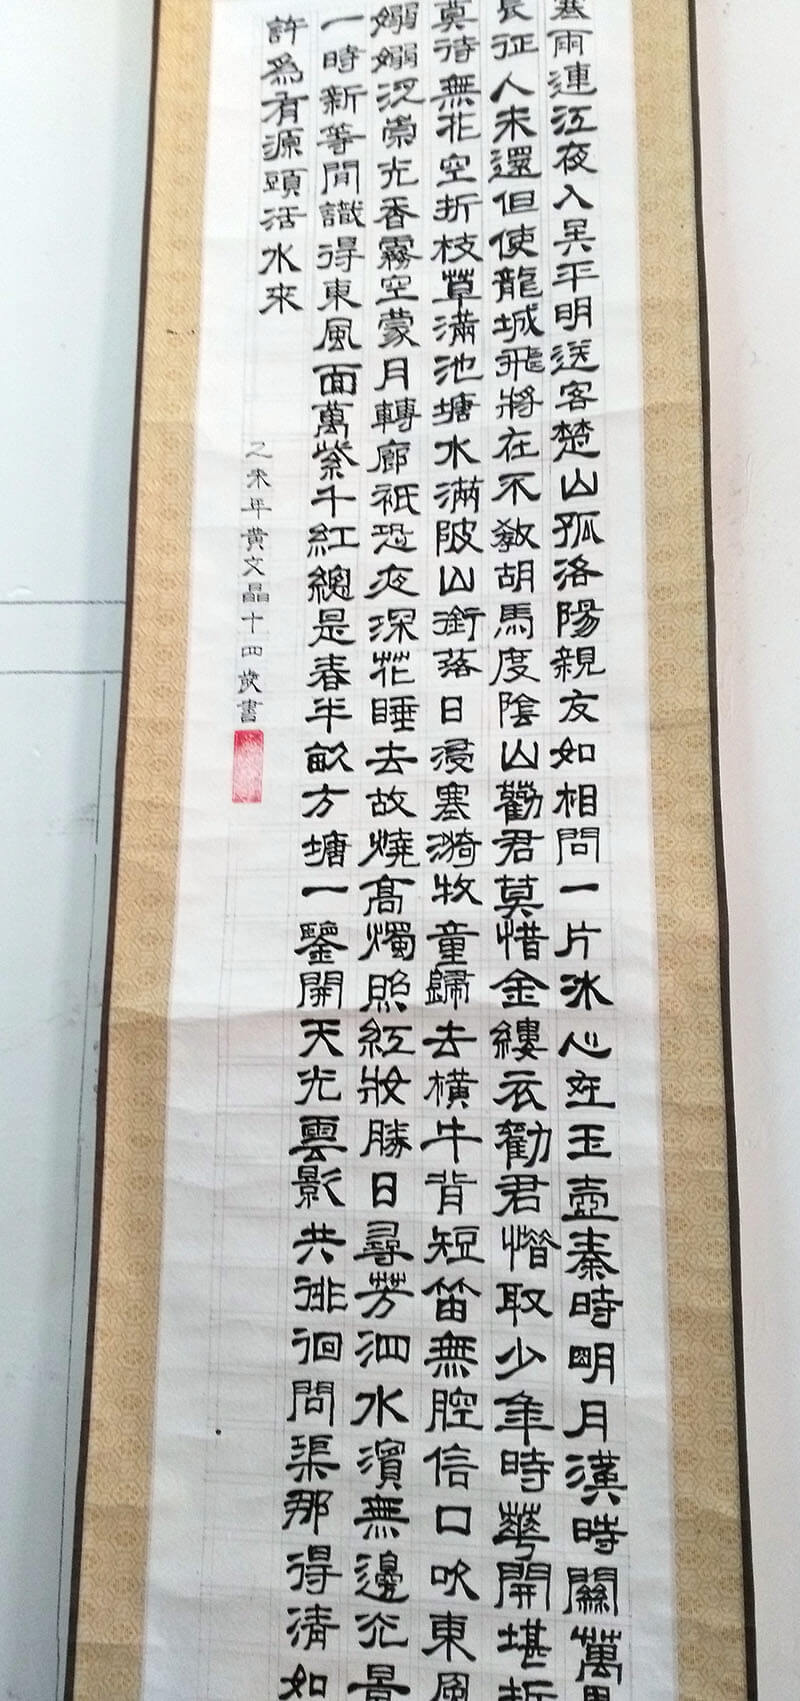 寒雨連江夜入吴平明送客楚山孤洛陽親友如相問一片冰心在玉壺秦時明月漢時關萬里
長征人未還但使龍城飛將在不教胡馬度陰山勸君莫惜金縷衣勸君惜取少年時華開堪折
莫待無花空折枝草滿池塘水滿陂山銜落日浸寒漪牧童歸去橫牛背短笛無腔信口吹東風
嫋嫋泛崇光香霧空蒙月轉廊衹恐夜深花睡去故燒高燭照紅妝勝日尋芳泗水濱無邊光景
一時新等閒識得東風面萬紫千紅總是春半畝方塘一鑒開天光雲影共徘徊問渠那得清如
許為有源頭活水來
乙未年黄文晶十四歲書